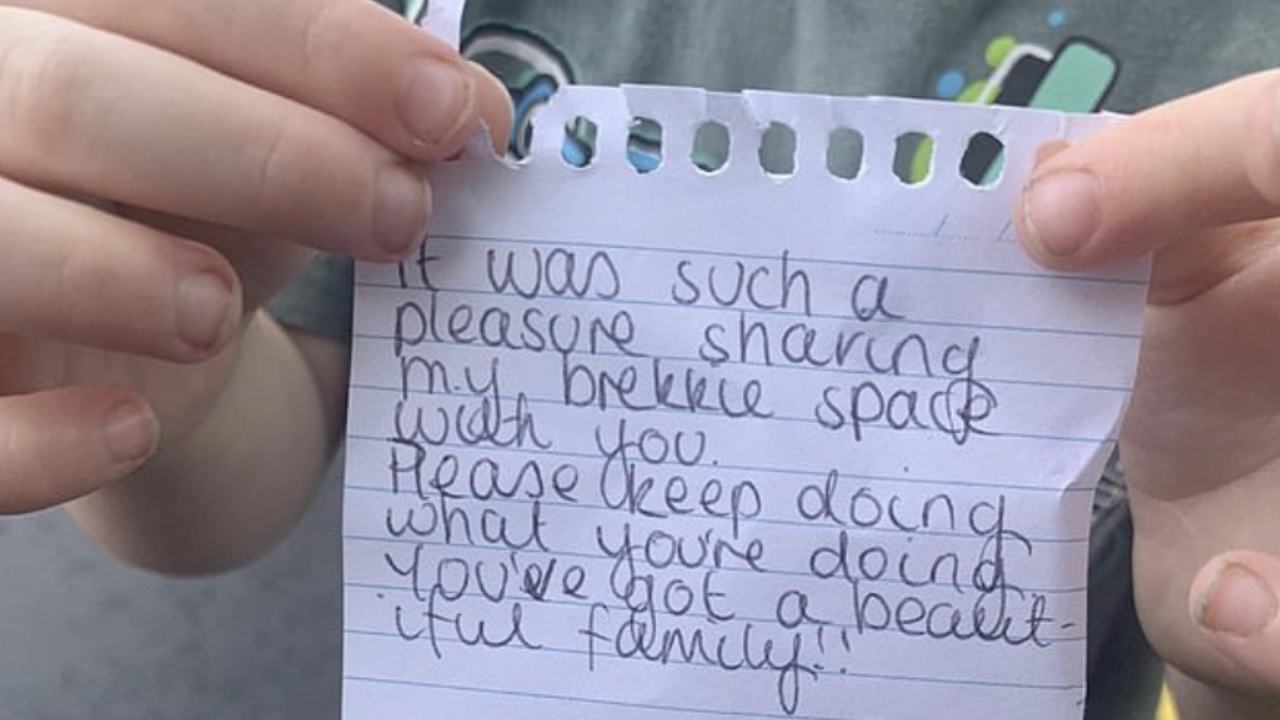 It was such a
pleasure sharing
my brekkie space
with you.
Please keep doing
what you're doing
You've got a beaut-
iful family!!